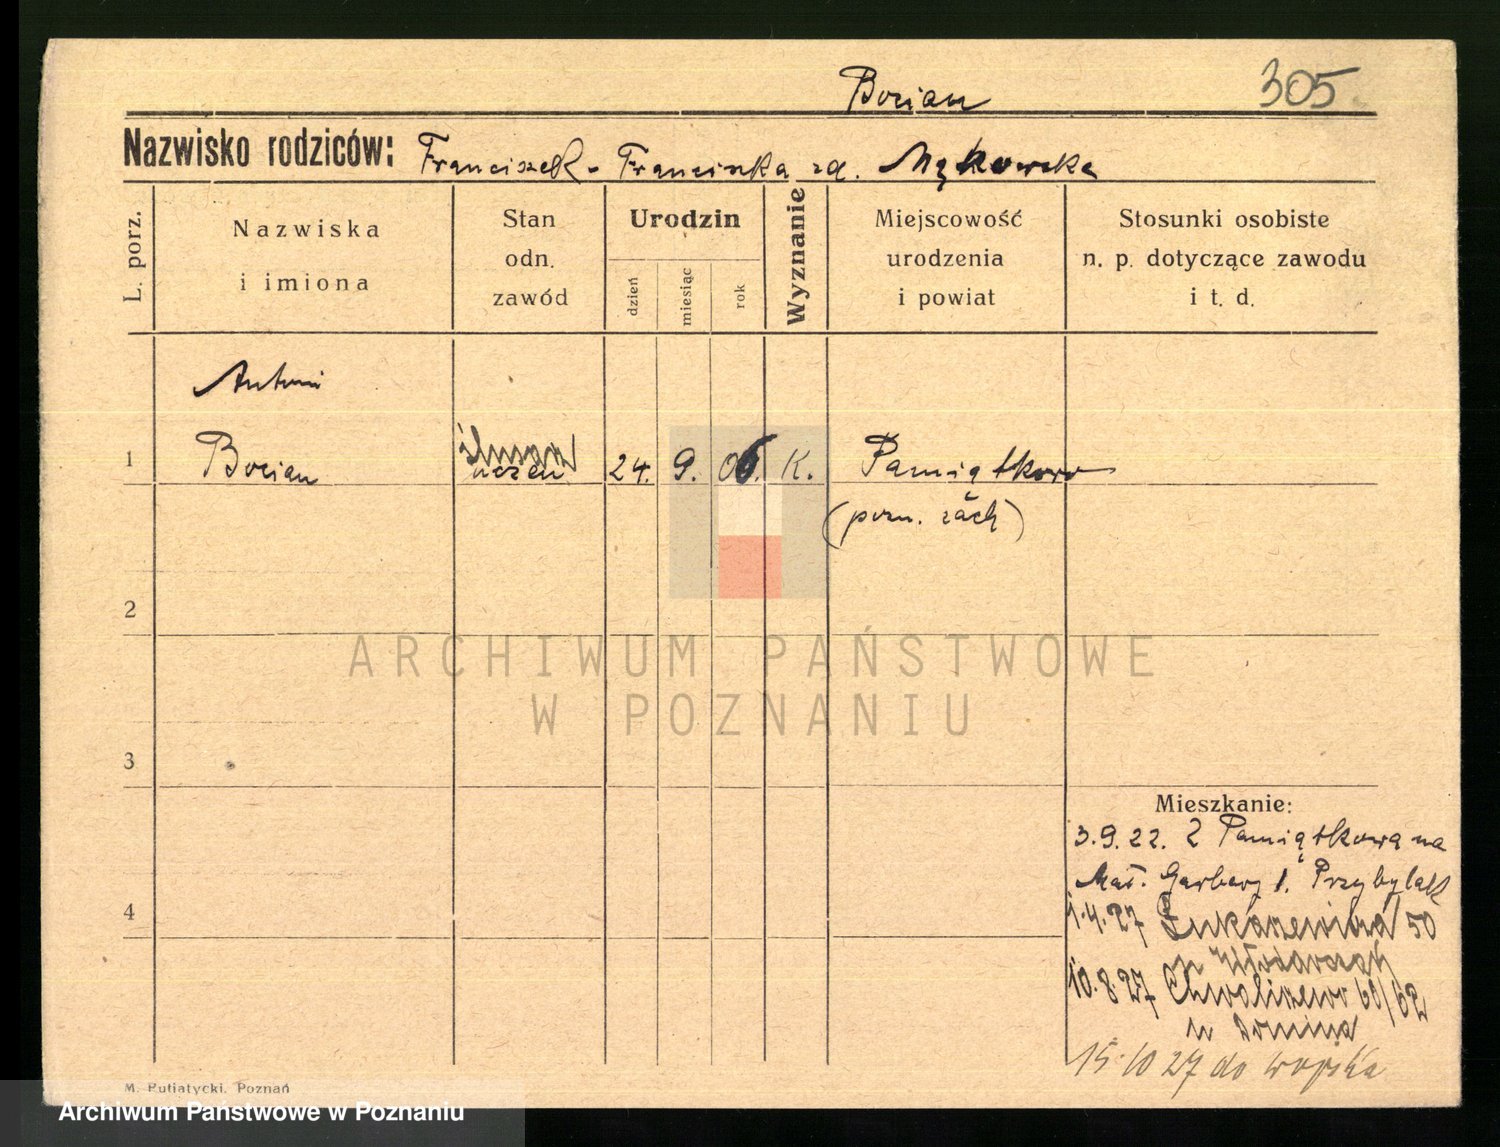 Borian
305
Nazwisko rodziców: Franciszek - Franciszka zd. Mąkowska
L. porz.
Nazwiska
i imiona
Stan
odn.
zawód
Urodzin
dzień
miesiąc
rok
Wyznanie
Miejscowość
urodzenia
i powiat
Stosunki osobiste
n. p. dotyczące zawodu
i t. d.
Antoni
1 Borian uczeń 24. 9. 06. K. Pamiątkowo
(pozn. zach)
2
ARCHIWUM PAŃSTWOWE
W POZNANIU
3
Mieszkanie:
3.9.22. Z Pamiątkowa na
Małe Garbary 1. Przybylak
4
1.4.27 Łukaszewicza 50
10.8.27 Chwaliszewo 60/62
15.10 27 do wojska
M. Putiatycki, Poznań
Archiwum Państwowe w Poznaniu